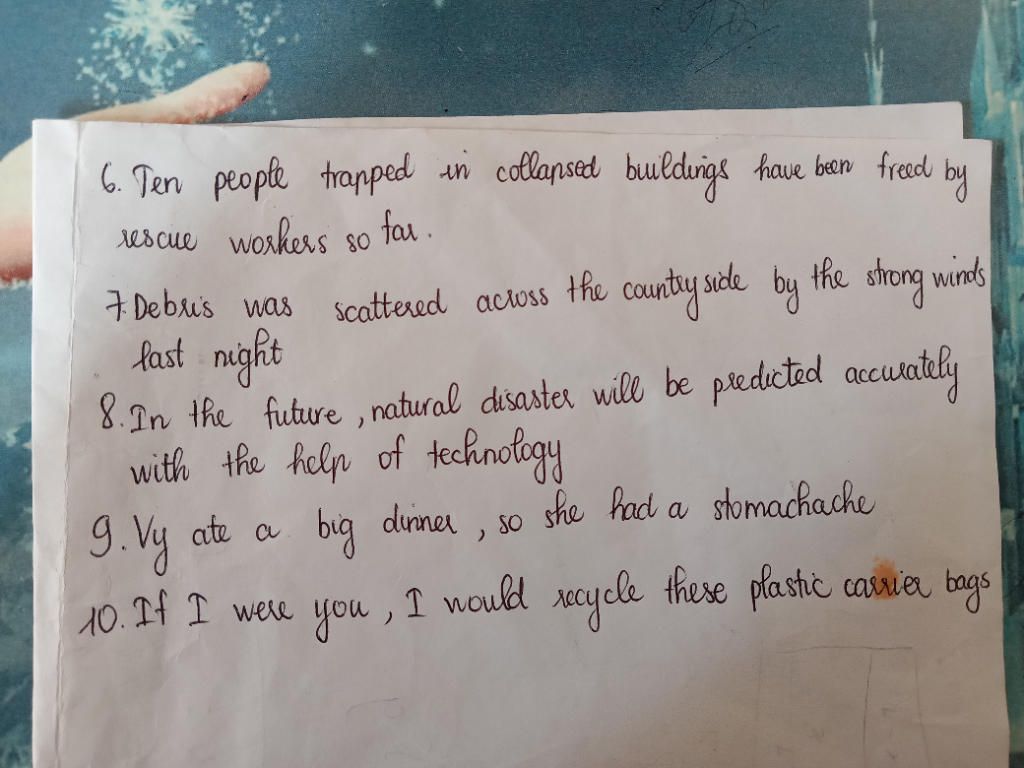 6. Ten people trapped in collapsed buildings have been freed by
rescue workers so far.
7. Debris was scattered across the countryside by the strong winds
last night
8. In the future, natural disaster will be predicted accurately
with the help of technology
9. Vy ate a big dinner, so she had a stomachache
10. If I were you, I would recycle these plastic carrier bags